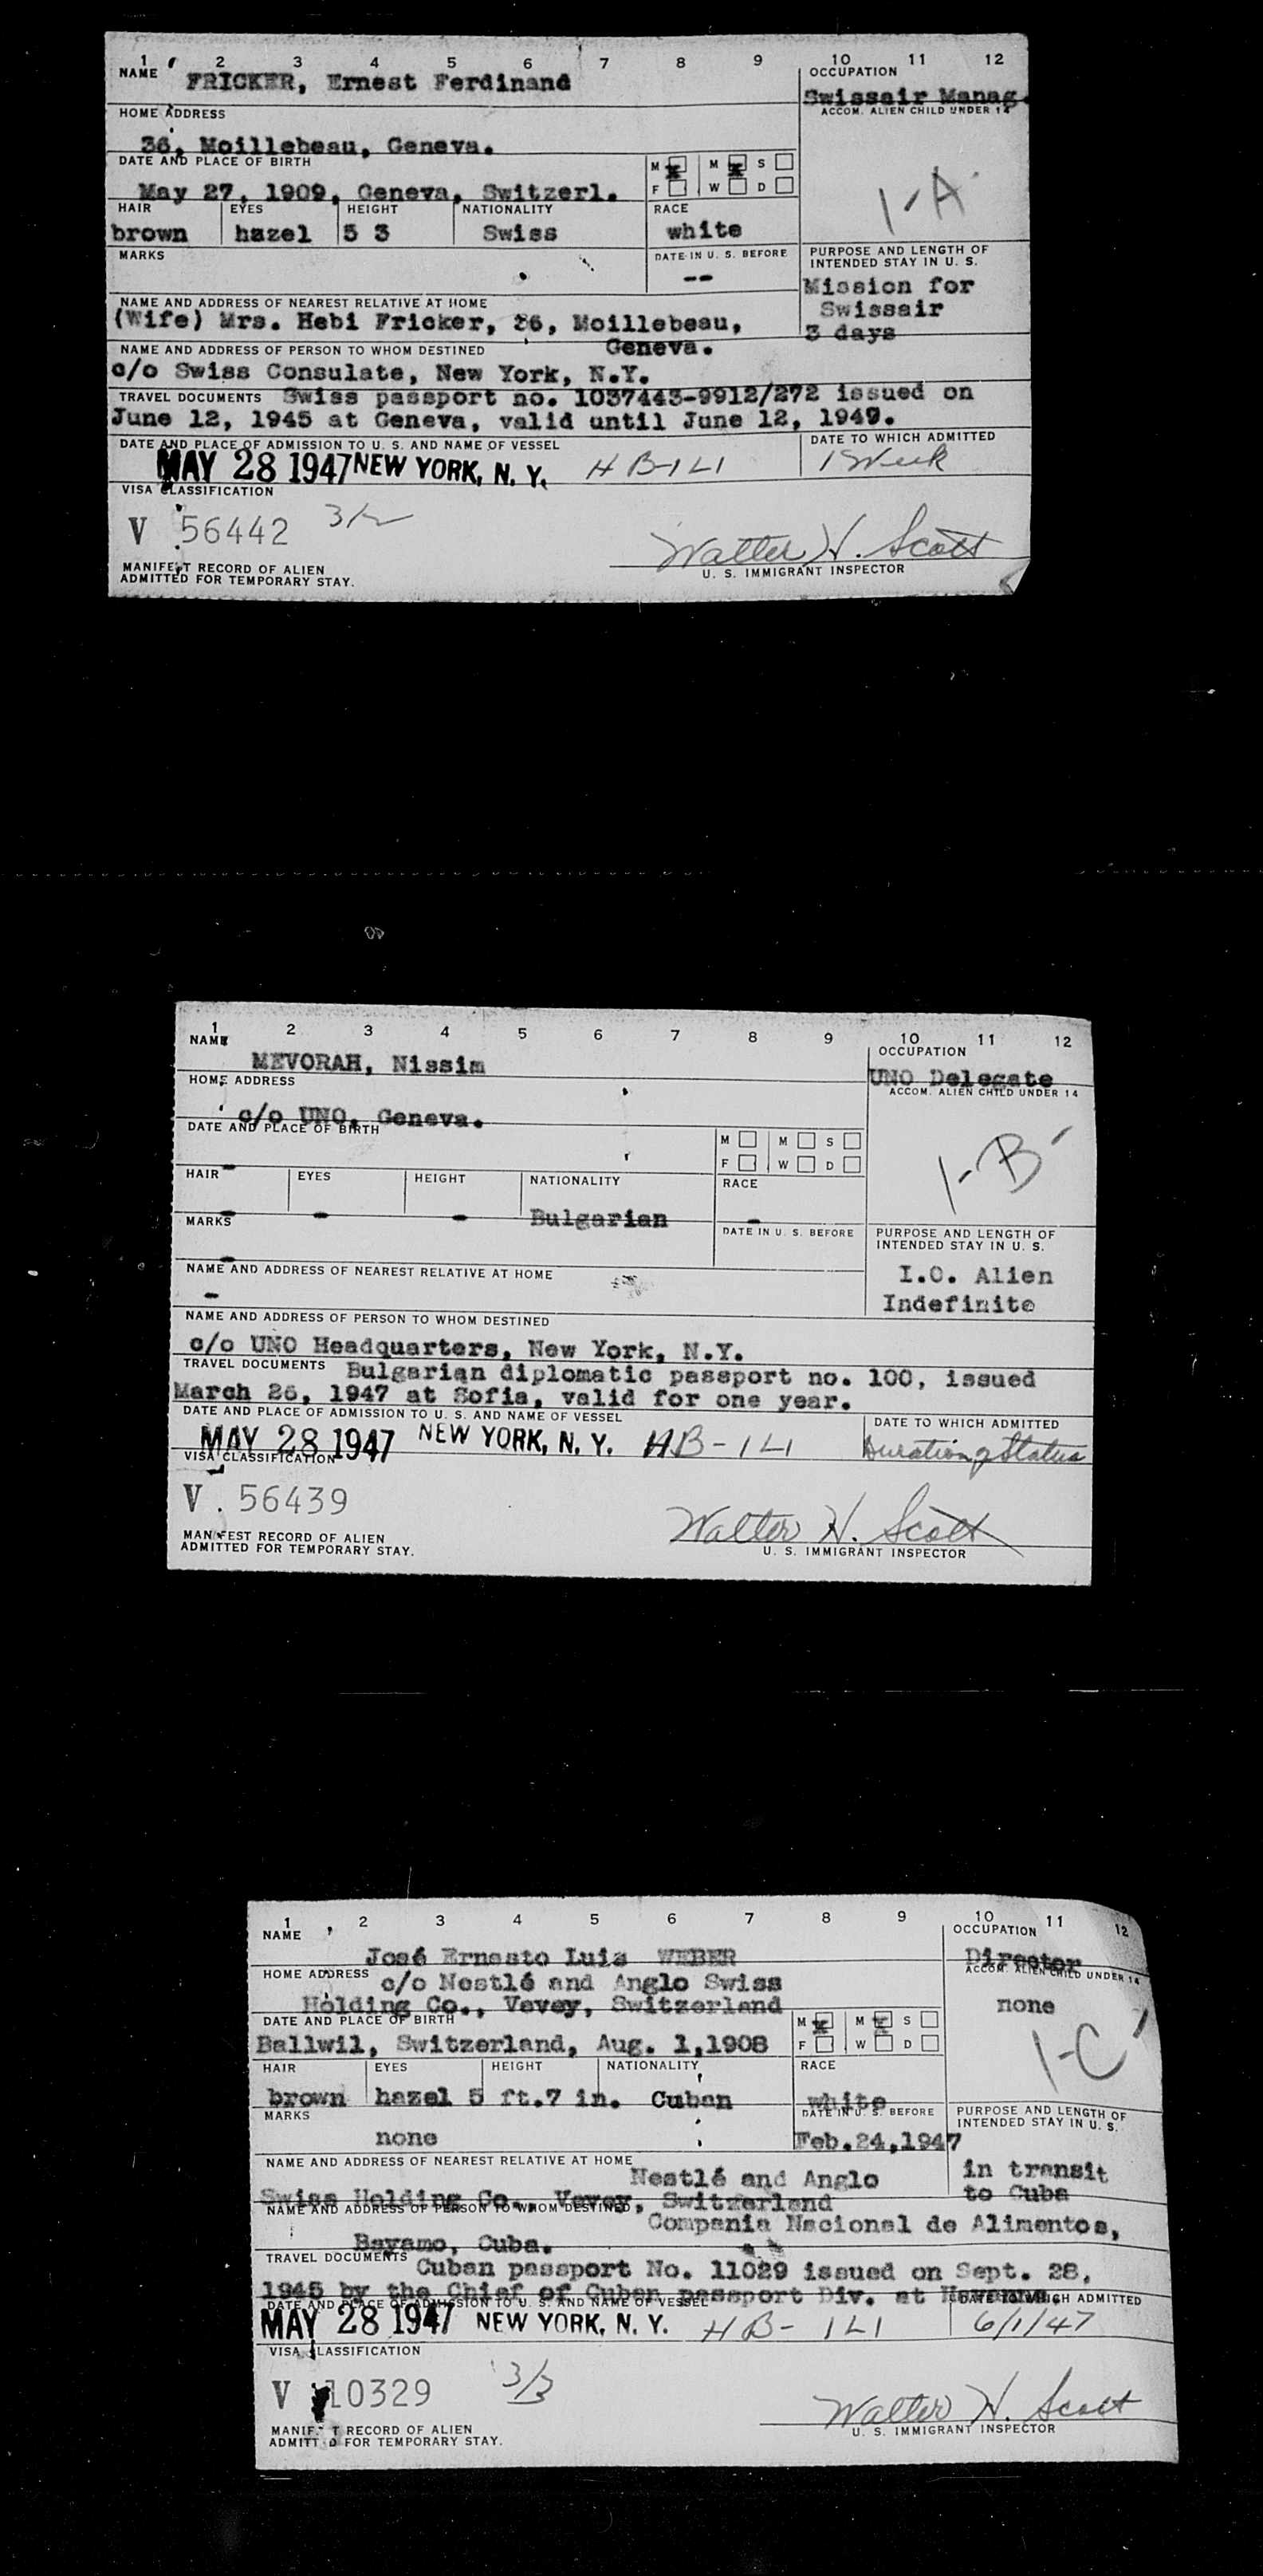 1 2 3 4 5 6 7 8 9 10 11 12
NAME FRICKER, Ernest Ferdinand
OCCUPATION
Swissair Manag.
HOME ADDRESS
ACCOM. ALIEN CHILD UNDER 14
36, Moillebeau, Geneva.
DATE AND PLACE OF BIRTH
M X M X S
F W D
May 27, 1909, Geneva, Switzerl.
1-A
HAIR EYES HEIGHT NATIONALITY RACE
brown hazel 5 3 Swiss white
MARKS DATE IN U. S. BEFORE
--
PURPOSE AND LENGTH OF
INTENDED STAY IN U. S.
Mission for
Swissair
3 days
NAME AND ADDRESS OF NEAREST RELATIVE AT HOME
(Wife) Mrs. Hebi Fricker, 36, Moillebeau,
Geneva.
NAME AND ADDRESS OF PERSON TO WHOM DESTINED
c/o Swiss Consulate, New York, N.Y.
TRAVEL DOCUMENTS Swiss passport no. 1037443-9912/272 issued on
June 12, 1945 at Geneva, valid until June 12, 1949.
DATE AND PLACE OF ADMISSION TO U. S. AND NAME OF VESSEL
DATE TO WHICH ADMITTED
MAY 28 1947 NEW YORK, N. Y. HB-ILI 1 Week
VISA CLASSIFICATION
V 56442 3/2
Walter H. Scott
MANIFEST RECORD OF ALIEN
ADMITTED FOR TEMPORARY STAY.
U. S. IMMIGRANT INSPECTOR
1 2 3 4 5 6 7 8 9 10 11 12
NAME MEVORAH, Nissim
OCCUPATION
UNO Delegate
HOME ADDRESS
ACCOM. ALIEN CHILD UNDER 14
c/o UNO, Geneva.
DATE AND PLACE OF BIRTH
M M S
F W D
-
1-B
HAIR EYES HEIGHT NATIONALITY RACE
- - Bulgarian -
MARKS DATE IN U. S. BEFORE
-
PURPOSE AND LENGTH OF
INTENDED STAY IN U. S.
I.O. Alien
Indefinite
NAME AND ADDRESS OF NEAREST RELATIVE AT HOME
-
NAME AND ADDRESS OF PERSON TO WHOM DESTINED
c/o UNO Headquarters, New York, N.Y.
TRAVEL DOCUMENTS Bulgarian diplomatic passport no. 100, issued
March 26, 1947 at Sofia, valid for one year.
DATE AND PLACE OF ADMISSION TO U. S. AND NAME OF VESSEL
DATE TO WHICH ADMITTED
MAY 28 1947 NEW YORK, N. Y. HB-ILI Duration of Status
VISA CLASSIFICATION
V. 56439
Walter H. Scott
MANIFEST RECORD OF ALIEN
ADMITTED FOR TEMPORARY STAY.
U. S. IMMIGRANT INSPECTOR
1 2 3 4 5 6 7 8 9 10 11 12
NAME
OCCUPATION
José Ernesto Luis WEBER
Director
HOME ADDRESS c/o Nestlé and Anglo Swiss
ACCOM. ALIEN CHILD UNDER 14
none
Holding Co., Vevey, Switzerland
DATE AND PLACE OF BIRTH
M X M X S
F W D
Ballwil, Switzerland, Aug. 1,1908
1-C
HAIR EYES HEIGHT NATIONALITY RACE
brown hazel 5 ft.7 in. Cuban white
MARKS DATE IN U. S. BEFORE
none Feb.24,1947
PURPOSE AND LENGTH OF
INTENDED STAY IN U. S.
in transit
to Cuba
NAME AND ADDRESS OF NEAREST RELATIVE AT HOME Nestlé and Anglo
Swiss Holding Co., Vevey, Switzerland
NAME AND ADDRESS OF PERSON TO WHOM DESTINED
Compania Nacional de Alimentos,
Bayamo, Cuba.
TRAVEL DOCUMENTS Cuban passport No. 11029 issued on Sept. 28,
1945 by the Chief of Cuban passport Div. at Havanna.
DATE AND PLACE OF ADMISSION TO U. S. AND NAME OF VESSEL
DATE TO WHICH ADMITTED
MAY 28 1947 NEW YORK, N. Y. HB-ILI 6/1/47
VISA CLASSIFICATION
V 10329 3/3
Walter H. Scott
MANIFEST RECORD OF ALIEN
ADMITTED FOR TEMPORARY STAY.
U. S. IMMIGRANT INSPECTOR